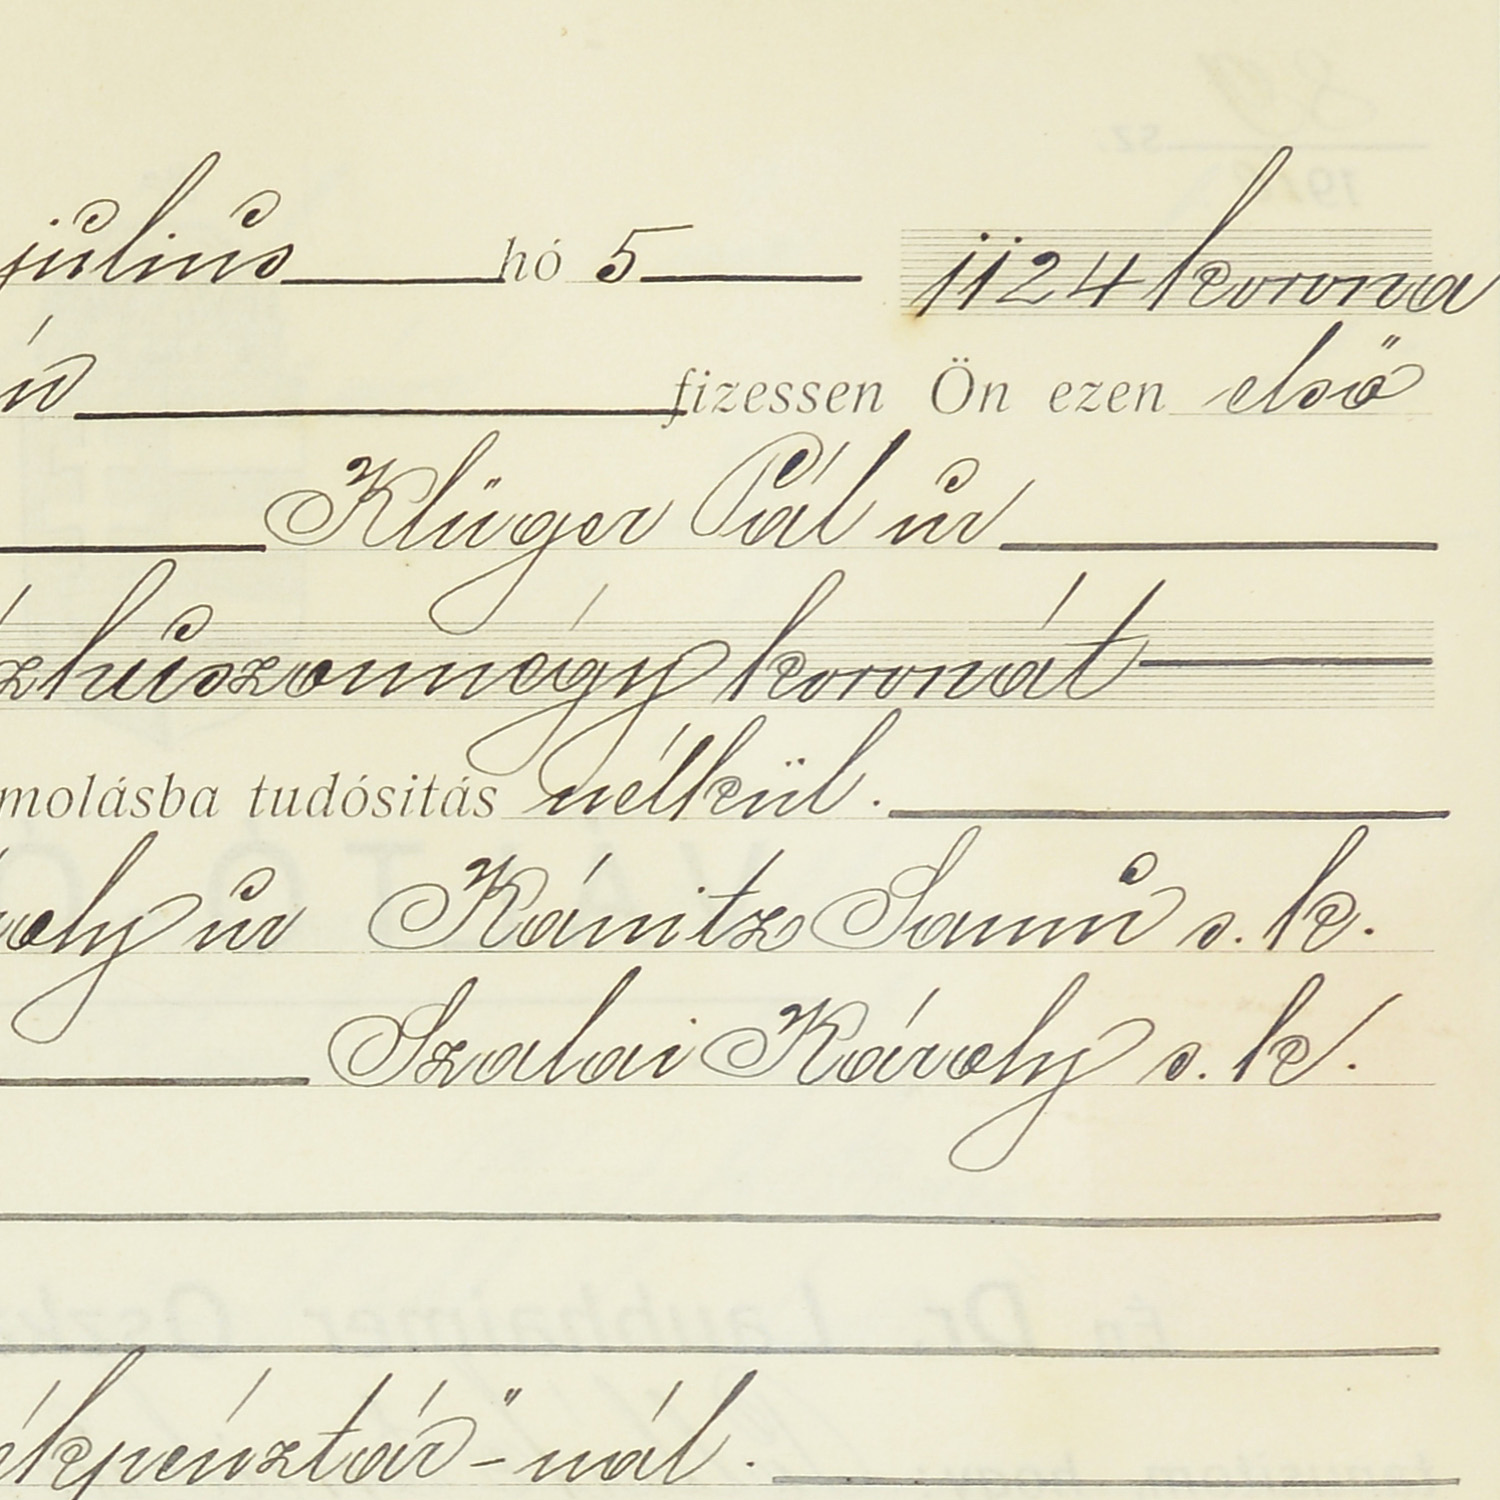 július hó 5 1124 korona
fizessen Ön ezen első
Klüger Pál úr
zhúszonnégy koronát
molásba tudósitás nélkül.
roly úr Kánitz Samu s. k.
Szalai Károly s. k.
ékpénztár"-nál.